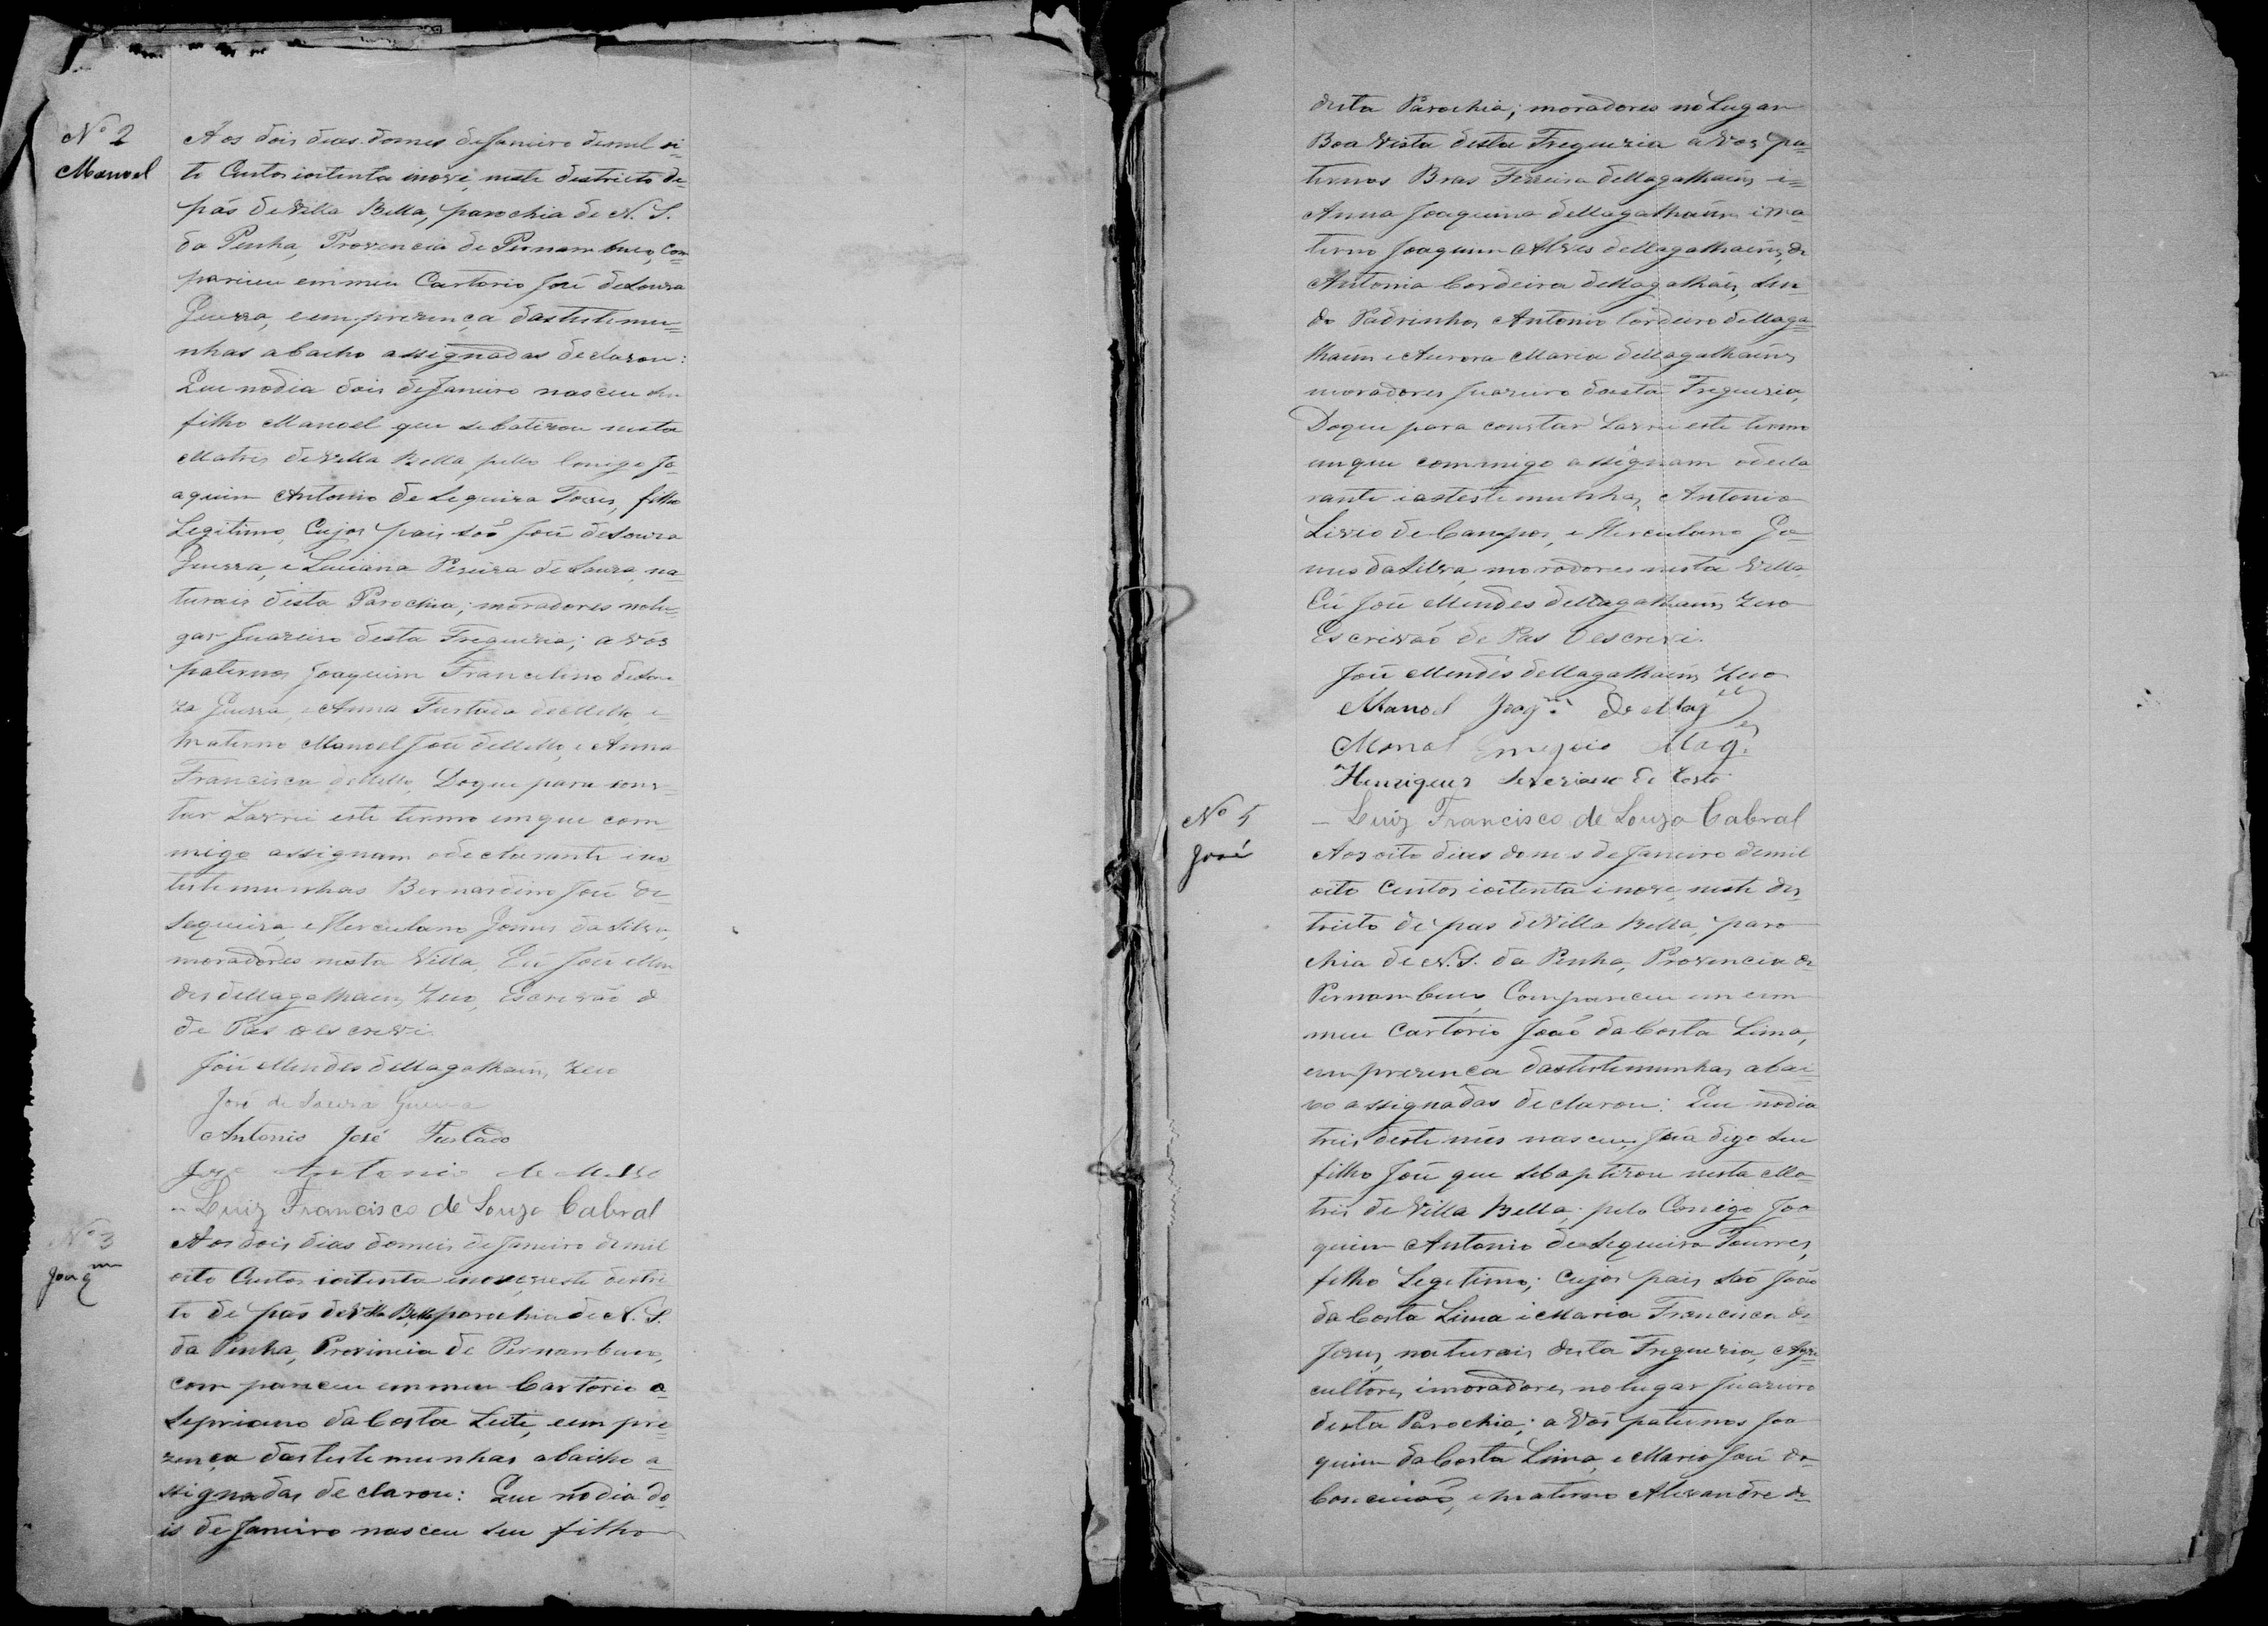 Nº 2
Manoel
Aos dois dias domes deJaneiro demil oi=
to Centos ioitenta inove, neste destricto de
pás deVilla Bella, parochia de N. S.
da Penha, Provencia de Pernambuco, Com=
pareceu emmeu Cartorio José deSouza
Guerra, eem prezença dastestemu=
nhas abaicho assignadas declarou:
Que nodia dois deJaneiro nasceu seu
filho Manoel que sebatizou nesta
Matris deVilla Bella pello Conigo Jo=
aquim Antonio de Sequeira Torres, filho
Legitimo, Cujos pais são José deSouza
Guerra, e Luciana Pereira de Souza, na=
turais desta Parochia; moradores nolu=
gar Juazeiro desta Freguezia; avós
paternos Joaquim Francelino deSou=
za Guerra, e Anna Furtado deMello, e=
materno Manoel José deMello, e Anna
Francisca deMello, Doque para cons=
tar Lavrei este termo emque com=
migo assignam odeclarante ias
testemunhas Bernardino José de=
Sequeira, e Herculano Gomes daSilva,
moradores nesta Villa, Eu José Men
des deMagalhaens, Escrivão d
de Pas oescrevi
José Mendes deMagalhaens
José de Souza Guerra
Antonio José Furtado
Joze Antonio de Mello
- Luiz Francisco de Souza Cabral
Nº 3
Joaqm
Aos dois dias domeis deJaneiro demil
oito Centos ioitenta inove, neste destri
to de pás deVilla Bella parochia de N. S.
da Penha, Provincia de Pernambuco,
compareceu emmeu Cartorio a=
Sepriano daCosta Leite, eem pre=
zença dastestemunhas abaicho a=
ssignadas declarou: Que nodia do=
is deJaneiro nasceu seu filho
desta Parochia; moradores noLugar
Boa Vista desta Freguezia avós pa=
ternos Bras Ferreira deMagalhaens e=
Anna Joaquina deMagalhaens ima=
terno Joaquim Alves deMagalhaens, de
Antonia Cordeira deMagalhaes, Sen=
do Padrinhos Antonio Cordeiro deMaga=
lhaens e Aurora Maria deMagalhaens
moradores Juazeiro desta Freguezia,
Doque para constar Lavrei este termo
emque commigo assignam odecla
rante iastestemunhas, Antonio
Livio de Campos, e Herculano Go=
mes daSilva, moradores nesta Villa,
Eu José Mendes deMagalhaens
Escrivão de Pas Oescrevi.
José Mendes deMagalhaens
Manoel Joaqm. de Mag
Manoel Mag.
Henriques Severiano da Costa
- Luiz Francisco de Souza Cabral
Nº 5
José
Aos oito dias domes deJaneiro demil
oito Centos ioitenta inove, neste des=
tricto de pas deVilla Bella, paro
chia de N. S. da Penha, Provencia de
Pernambuco, Compareceu em em
meu Cartorio João daCosta Lima,
eem prezença dastestemunhas abai=
xo assignadas declarou: Que nodia
treis deste mês nasceu, digo seu
filho José que sebaptizou nesta Ma=
tris de Villa Bella, pelo Conigo Joa
quim Antonio deSequeira Tourres,
filho Legitimo; Cujos pais são João
da Costa Lima i Maria Francisca de
Jezus, naturais desta Freguezia, Agri=
cultores, imoradores, nolugar Juazeiro
desta Parochia; avós paternos Joa
quim daCosta Lima, e Maria José da
Conceicão, ematerno Alexandre de=